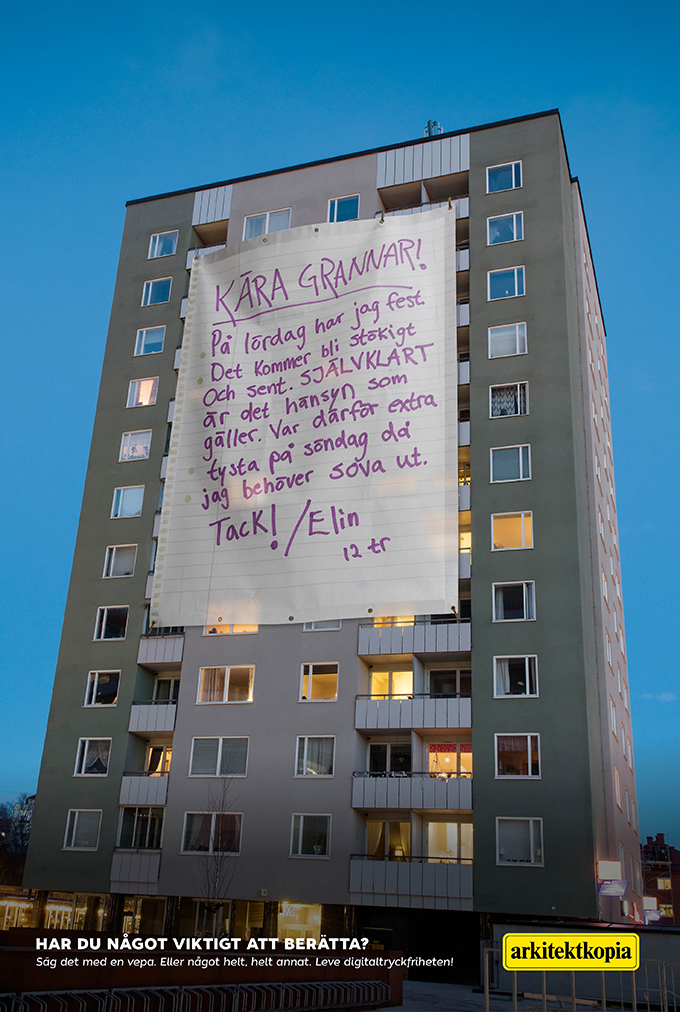 KÄRA GRANNAR!
På lördag har jag fest.
Det kommer bli stökigt
och sent. SJÄLVKLART
är det hänsyn som
gäller. Var därför extra
tysta på söndag då
jag behöver sova ut.
Tack! /Elin
12 tr
HAR DU NÅGOT VIKTIGT ATT BERÄTTA?
Säg det med en vepa. Eller något helt, helt annat. Leve digitaltryckfriheten!
arkitektkopia